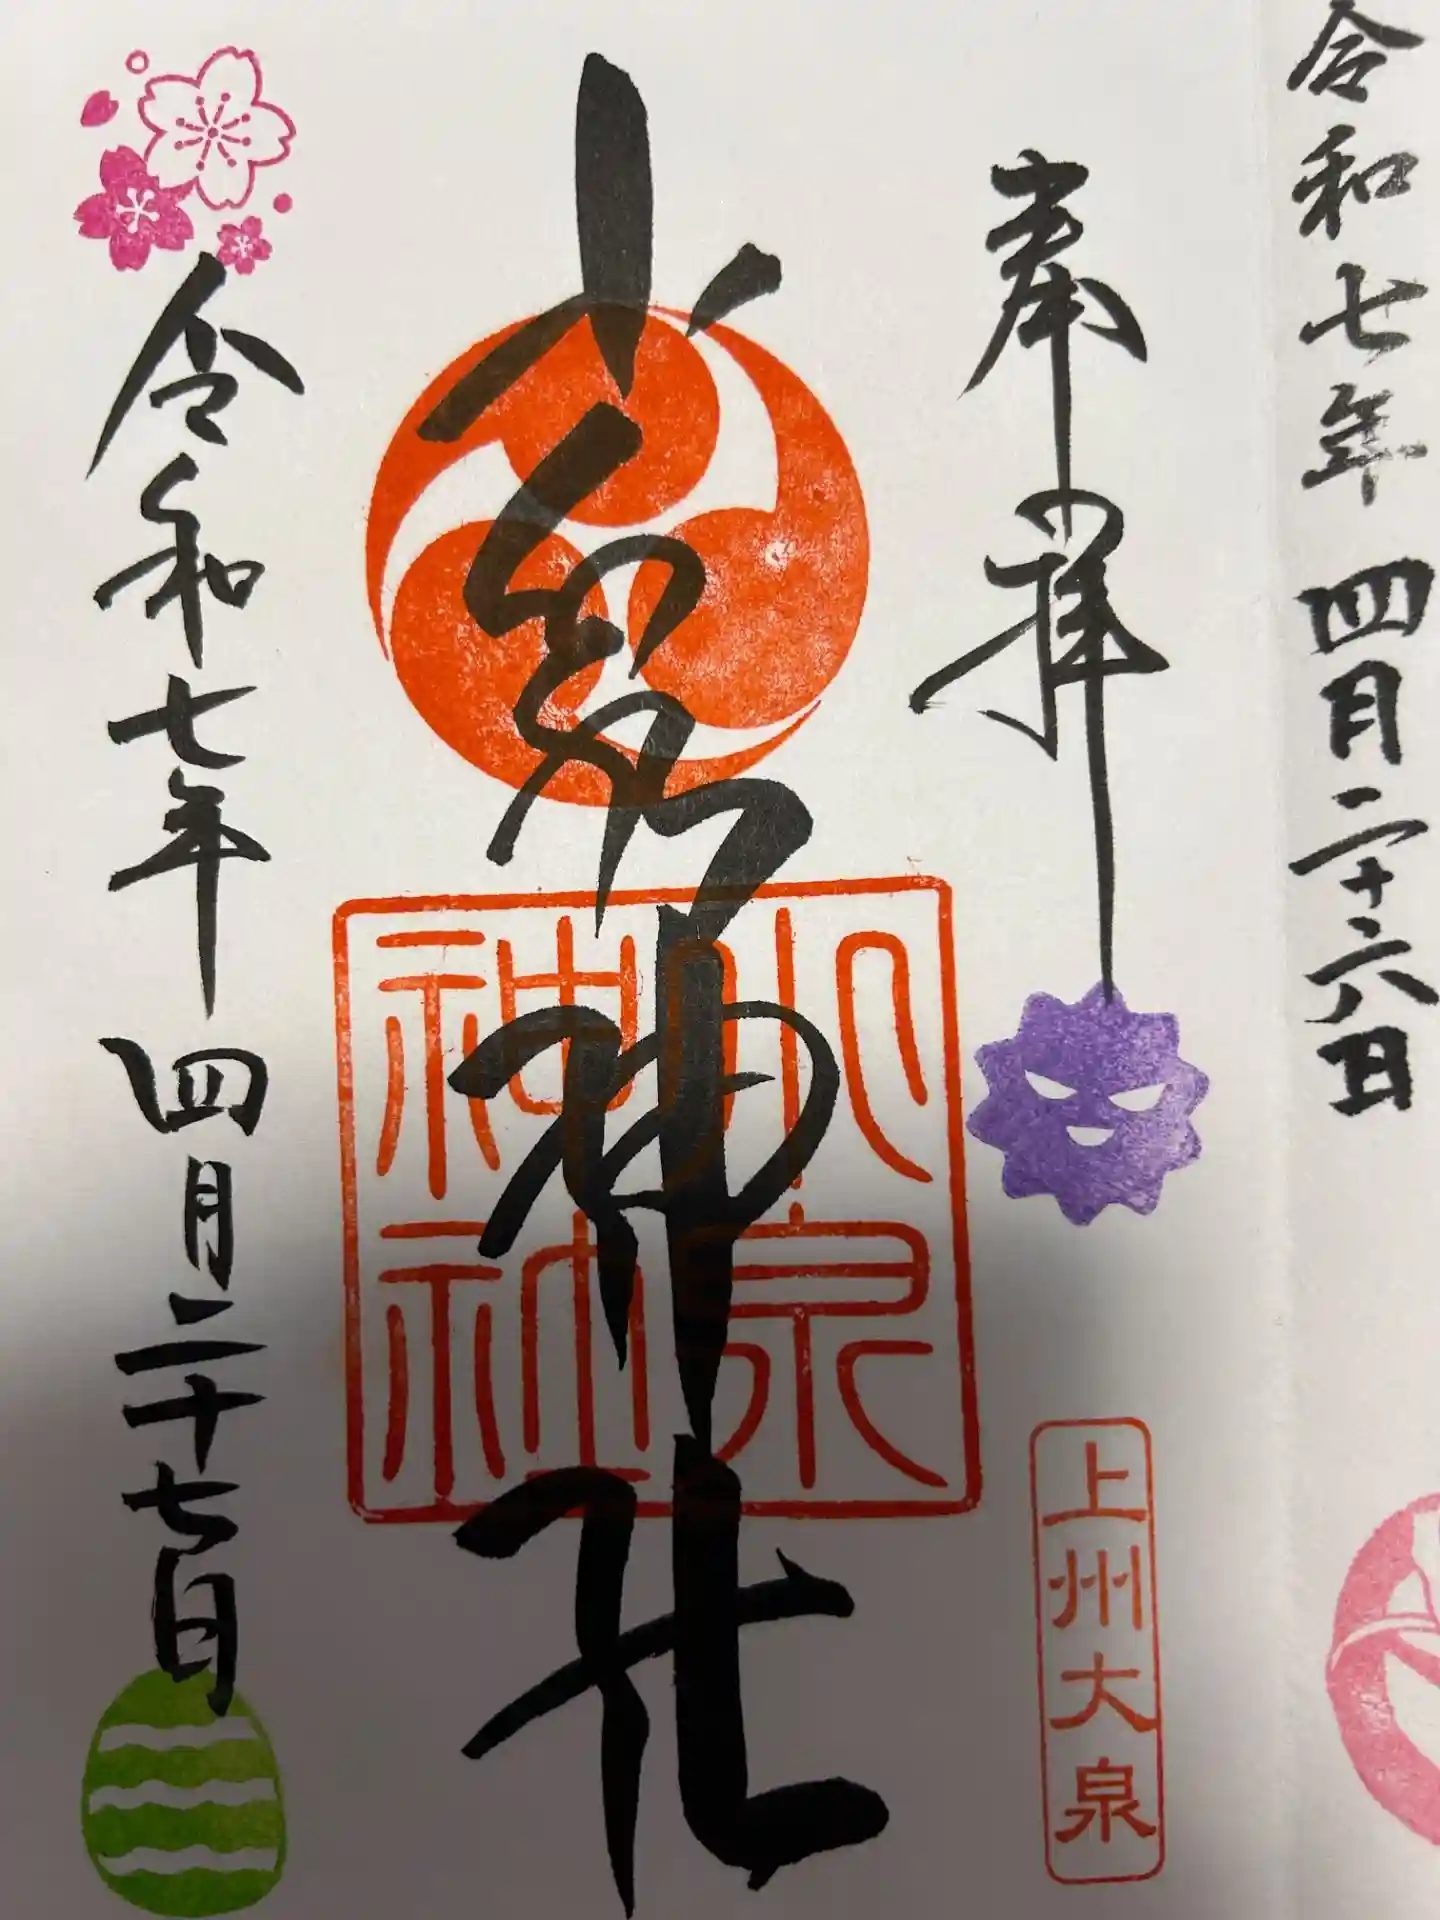 令和七年四月二十六日
奉拝
上州大泉
小泉神社
小泉
神社
令和七年四月二十七日